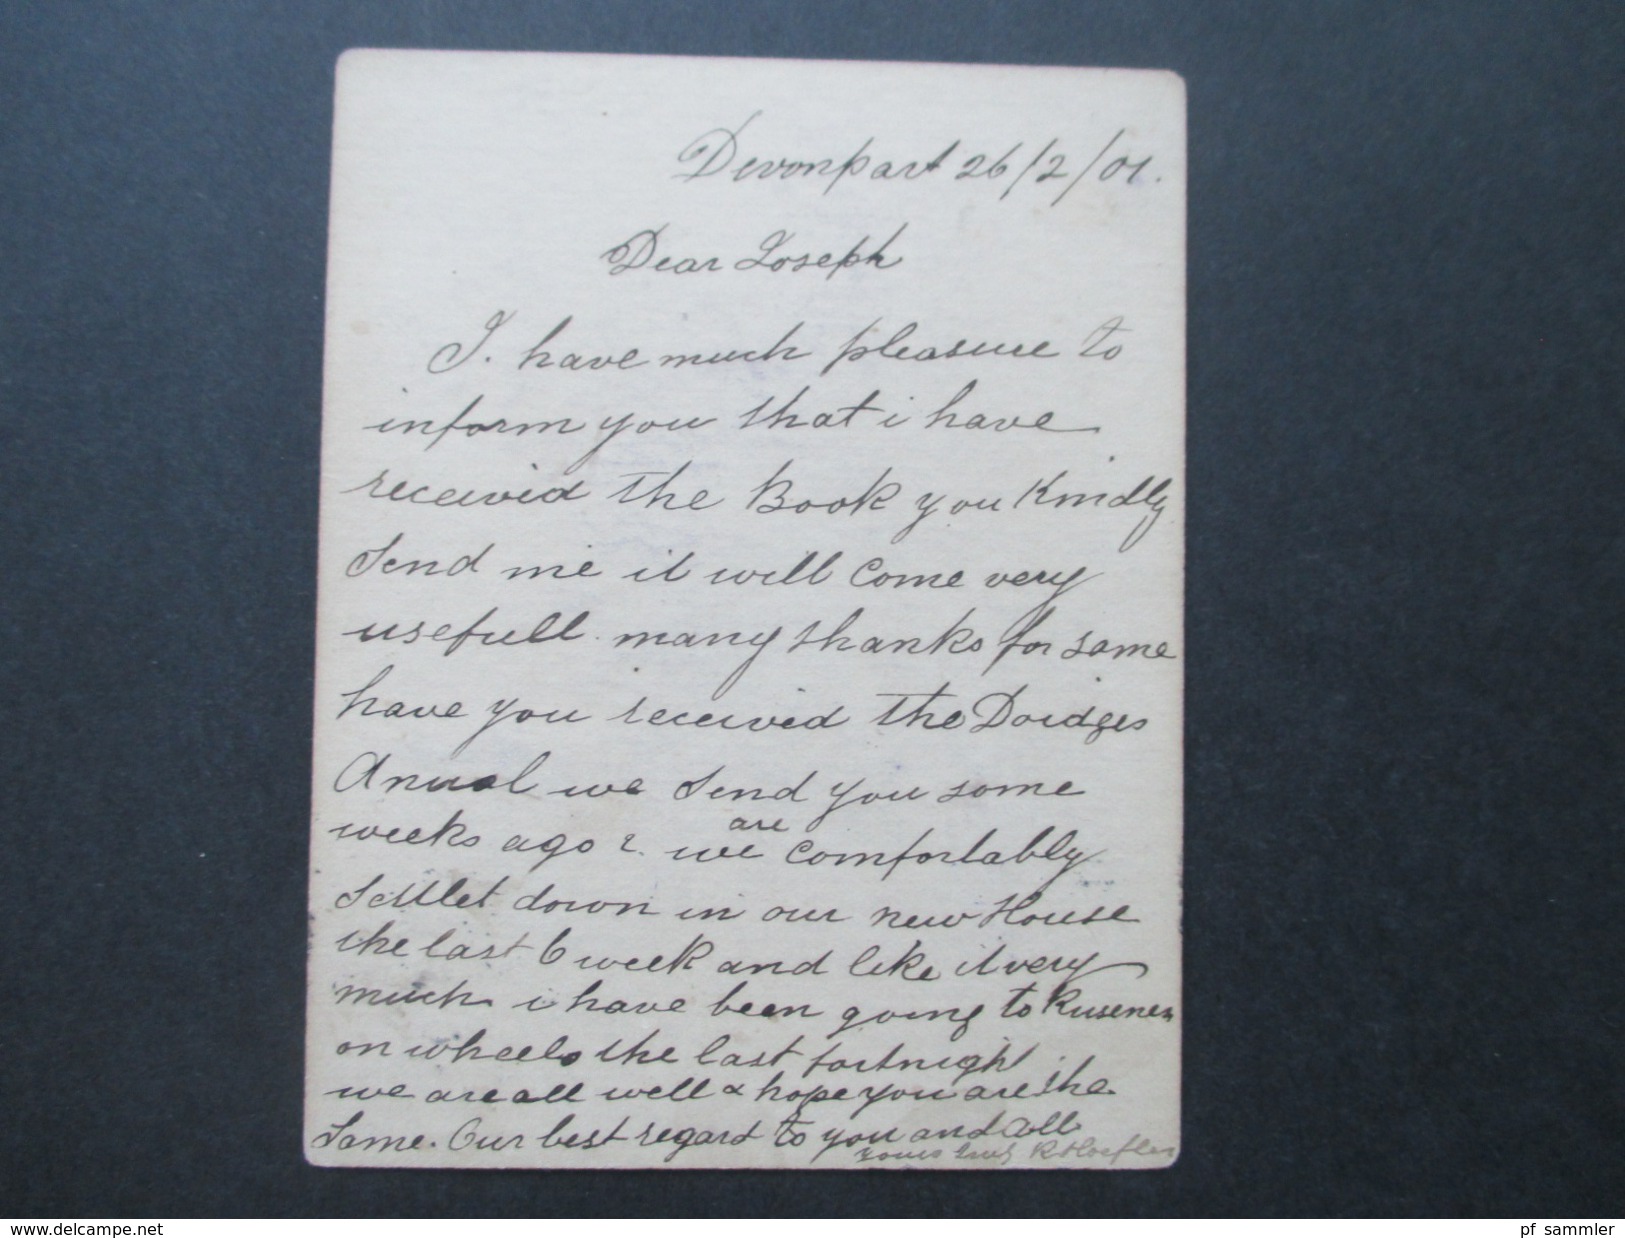 Devonpart 26/2/01.
Dear Joseph
I. have much pleasure to
inform you that i have
received the Book you Kindly
Send me it will come very
usefull. many thanks for same
have you received the Doidges
Anual we Send you some
weeks ago?
are
we comfortably
Settlet down in our new House
the last 6 week and like it very
much i have been going to
on wheels the last fortnight
we are all well & hope you are the
Same. Our best regard to you and all
yours R Hoefler
www.delcampe.net
pf sammler